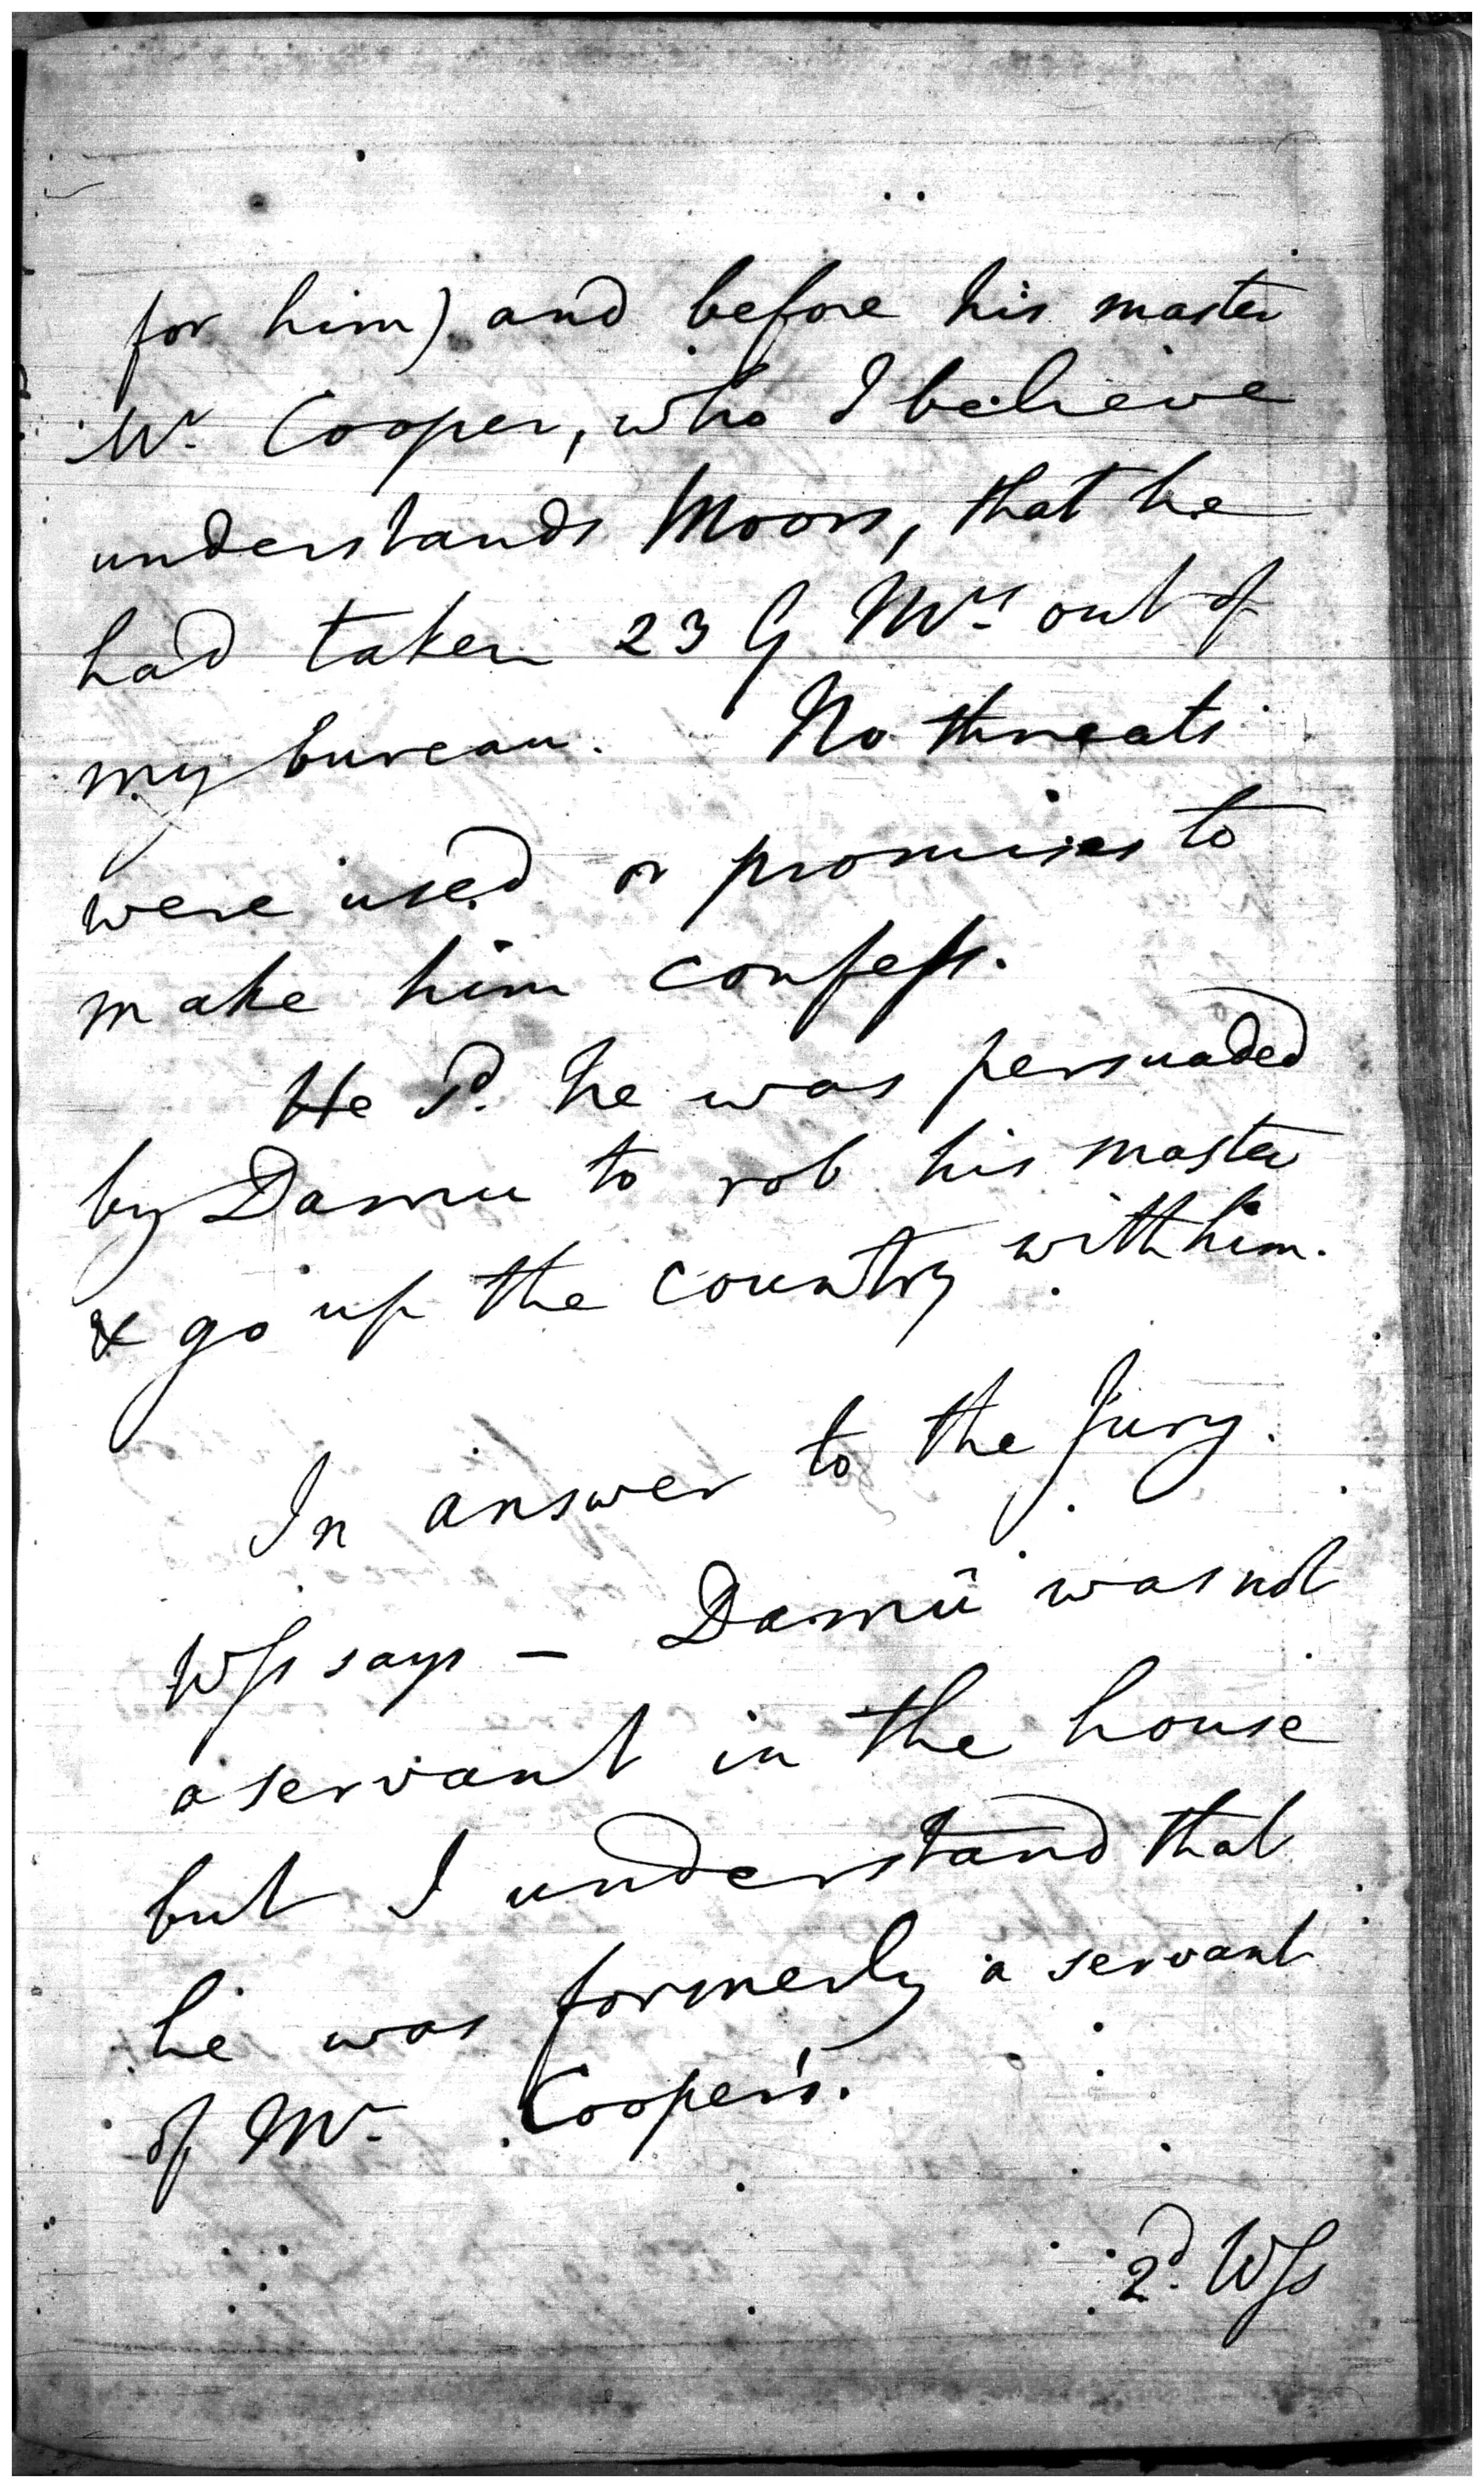 for him) and before his master
Mr. Cooper, who I believe
understands Moors, that he
had taken 23 G Mrs. out of
my bureau. No threats
were used or promises to
make him confess.
He Sd. he was persuaded
by Damu to rob his master
& go up the country with him.
In answer to the Jury.
Wss says - Damû was not
a servant in the house
but I understand that
he was formerly a servant
of Mr. Cooper's.
2d. Wss